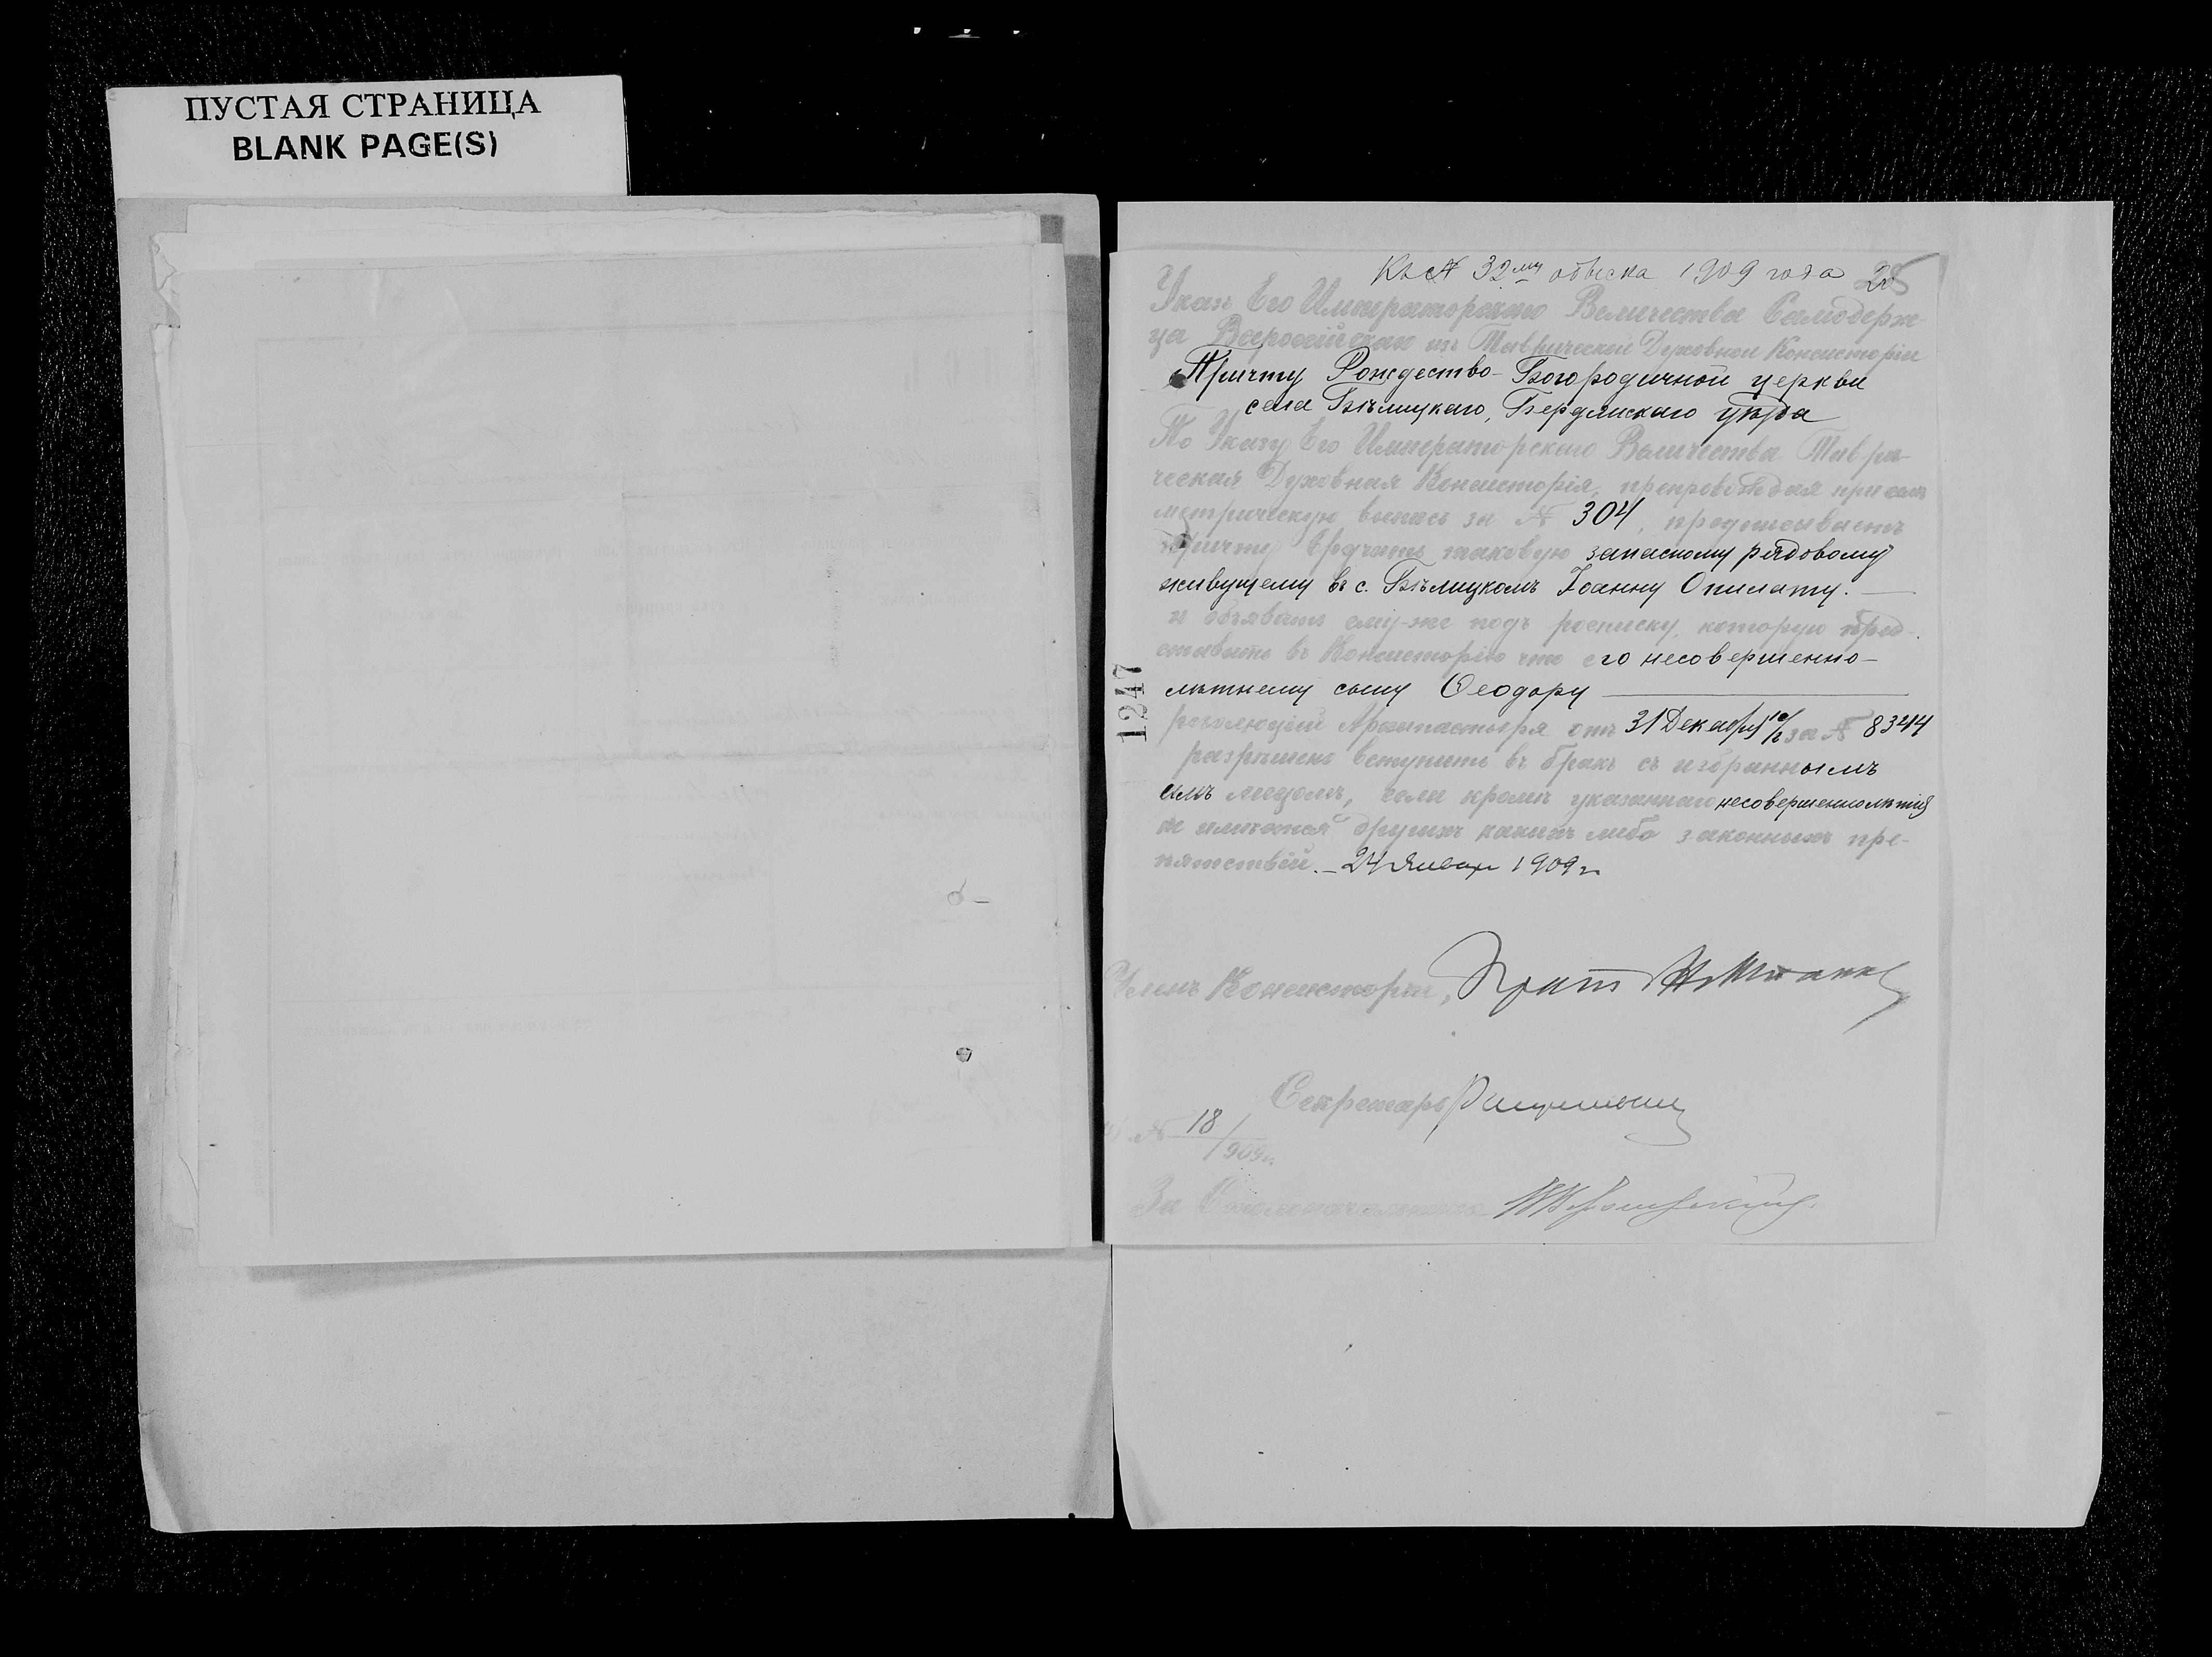 ПУСТАЯ СТРАНИЦА
BLANK PAGE(S)
Къ № 32му обыска 1909 года
Указъ Его Императорскаго Величества Самодерж-
ца Всероссійскаго изъ Таврической Духовной Консисторіи
Причту Рождество-Богородичной церкви
села Бѣлицкаго, Бердянскаго уѣзда
По Указу Его Императорскаго Величества Таври-
ческая Духовная Консисторія, препровождая при семъ
метрическую выпись за № 304, предписываетъ
причту вручить таковую запасному рядовому
живущему въ с. Бѣлицкомъ Іоанну Опилату.
и объявить ему-же подъ росписку, которую пред-
ставить въ Консисторію что его несовершенно-
лѣтнему сыну Ѳеодору
резолюціей Архипастыря отъ 31 Декабря за № 8344
разрѣшено вступить въ бракъ съ избраннымъ
имъ лицомъ, если кромѣ указаннаго несовершеннолѣтія
не имѣется другихъ какихъ либо законныхъ пре-
пятствій. – 24 Января 1909 г.
1247
Членъ Консисторіи, Прот.
Секретарь
№ 18/909 г.
За Столоначальника